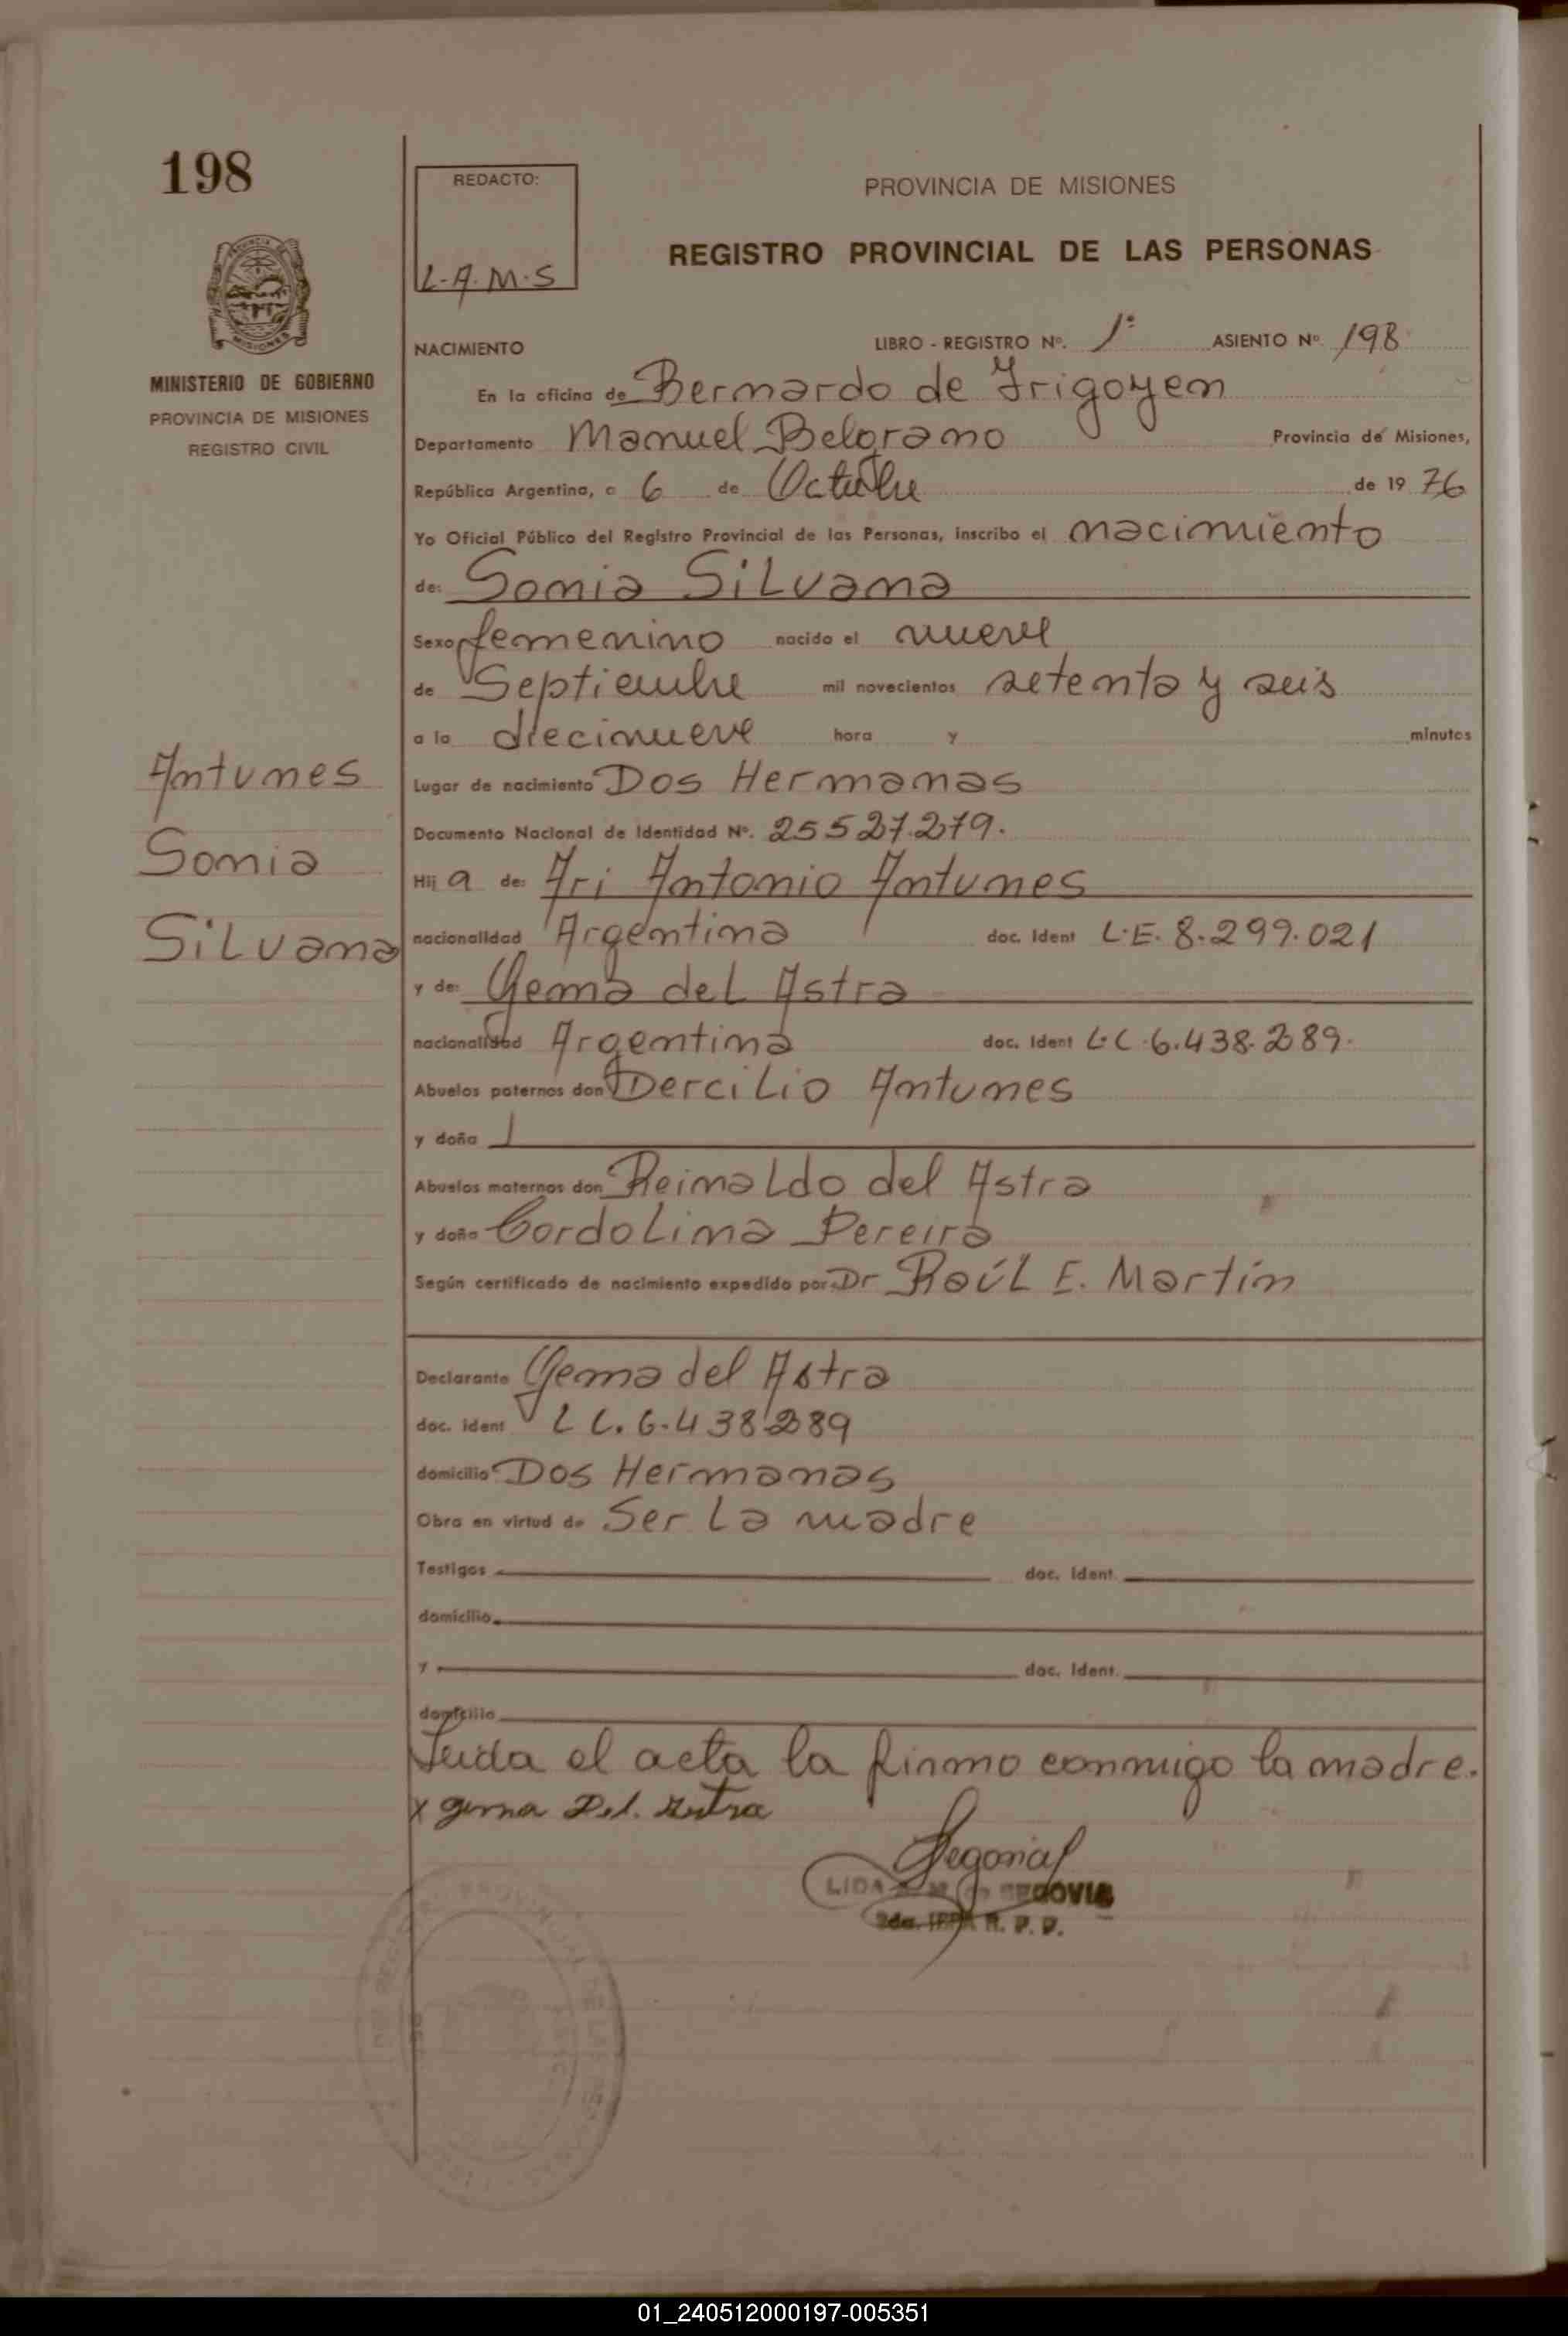 198
REDACTO:
L.A.M.S
PROVINCIA DE MISIONES
REGISTRO PROVINCIAL DE LAS PERSONAS
MINISTERIO DE GOBIERNO
PROVINCIA DE MISIONES
REGISTRO CIVIL
NACIMIENTO LIBRO - REGISTRO Nº. 1º ASIENTO Nº 198
En la oficina de Bernardo de Irigoyen
Departamento Manuel Belgrano Provincia de Misiones,
República Argentina, a 6 de Octubre de 1976
Yo Oficial Público del Registro Provincial de las Personas, inscribo el nacimiento
de: Sonia Silvana
Sexo femenino nacido el nueve
de Septiembre mil novecientos setenta y seis
a la diecinueve hora y minutos
Antunes
Sonia
Silvana
Lugar de nacimiento Dos Hermanas
Documento Nacional de Identidad Nº. 25527.279.
Hij a de: Ari Antonio Antunes
nacionalidad Argentina doc. Ident L.E. 8.299.021
y de: Gema del Astra
nacionalidad Argentina doc. Ident L.C. 6.438.289.
Abuelos paternos don Dercilio Antunes
y doña
Abuelos maternos don Reinaldo del Astra
y doña Cordolina Pereira
Según certificado de nacimiento expedido por: Dr Raúl E. Martín
Declarante Gema del Astra
doc. ident L C. 6.438289
domicilio Dos Hermanas
Obra en virtud de Ser La madre
Testigos doc. Ident.
domicilio
y doc. Ident.
domicilio
Leida el acta la firmo conmigo la madre.
x gema Del. Astra
LIDA SEGOVIA
2da. JEFA R. P. P.
01_240512000197-005351